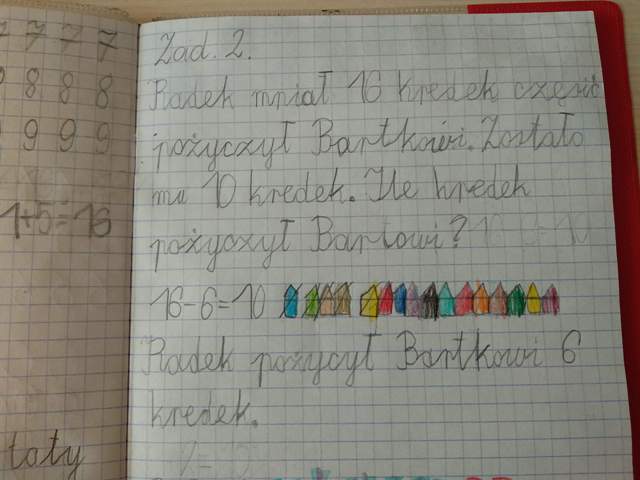 7 7 7
8 8 8
9 9 9
1+5=16
taty
Zad. 2.
Radek mniał 16 kredek część
pożyczył Bartkowi. Zostało
mu 10 kredek. Ile kredek
pożyczył Bartowi?
16-6=10
Radek pożycył Bartkowi 6
kredek.